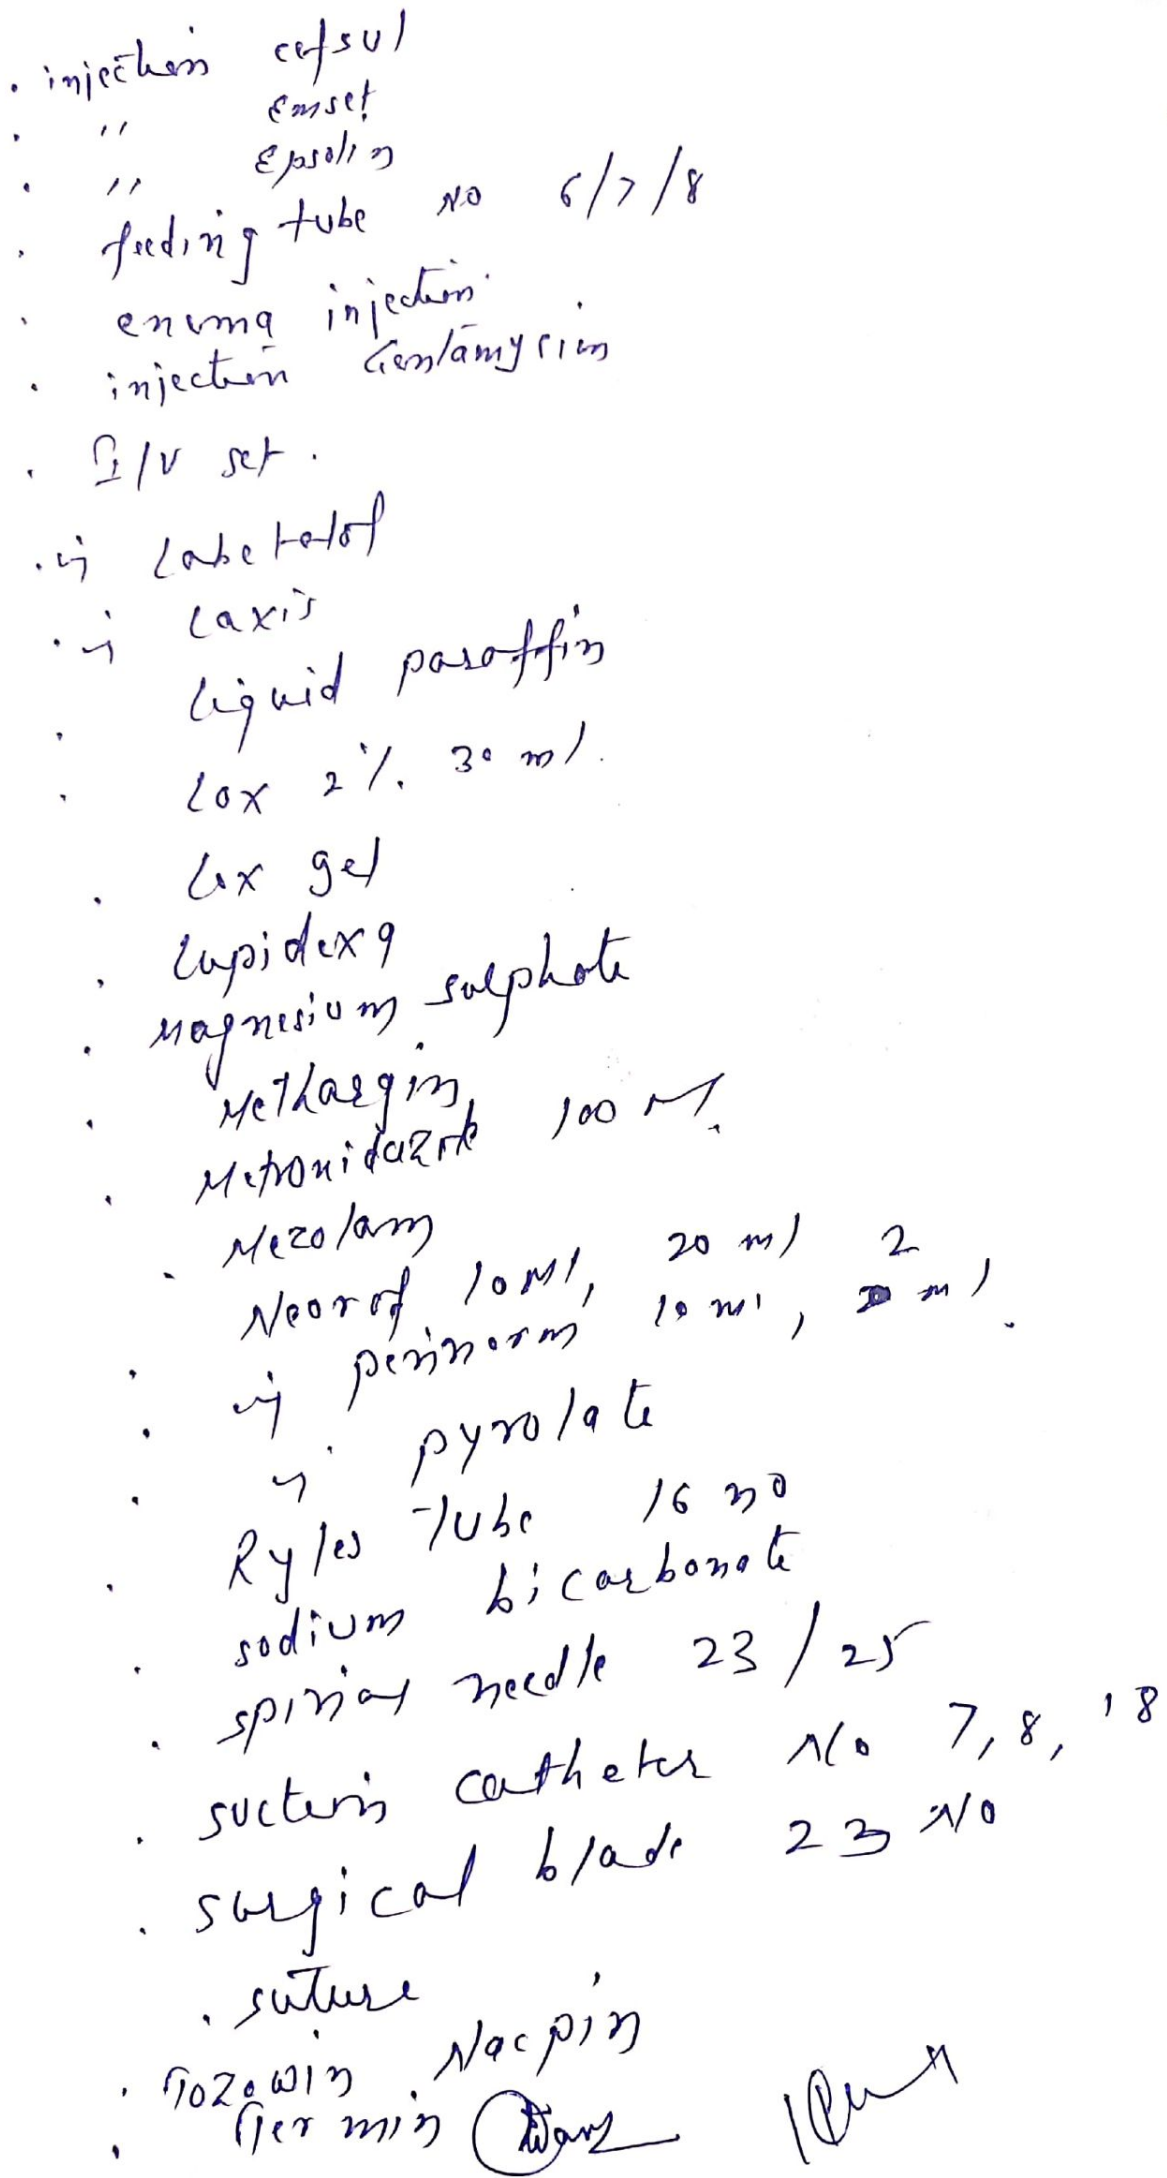 . injection cefsul
. " Emset
. " Epsolin
. feeding tube NO 6/7/8
. enuma injection
. injection Gentamycin
. I/V set.
. inj Labetalol
. inj Laxis
. liquid paraffin
. Lox 2%. 30 ml.
. Lox gel
. Lupidexa
. Magnesium sulphate
. Methargin
. Metronidazole 100 Ml.
. Mezolam
. Neorof 10 Ml, 20 ml
. inj perinorm 10 ml, 2 ml.
. inj pyrolate
. Ryles Tube 16 no
. sodium bicarbonate
. spinal needle 23/25
. suction catheter No 7, 8, 18
. surgical blade 23 No
. suture
. Tozowin . Nacpin
. Termin